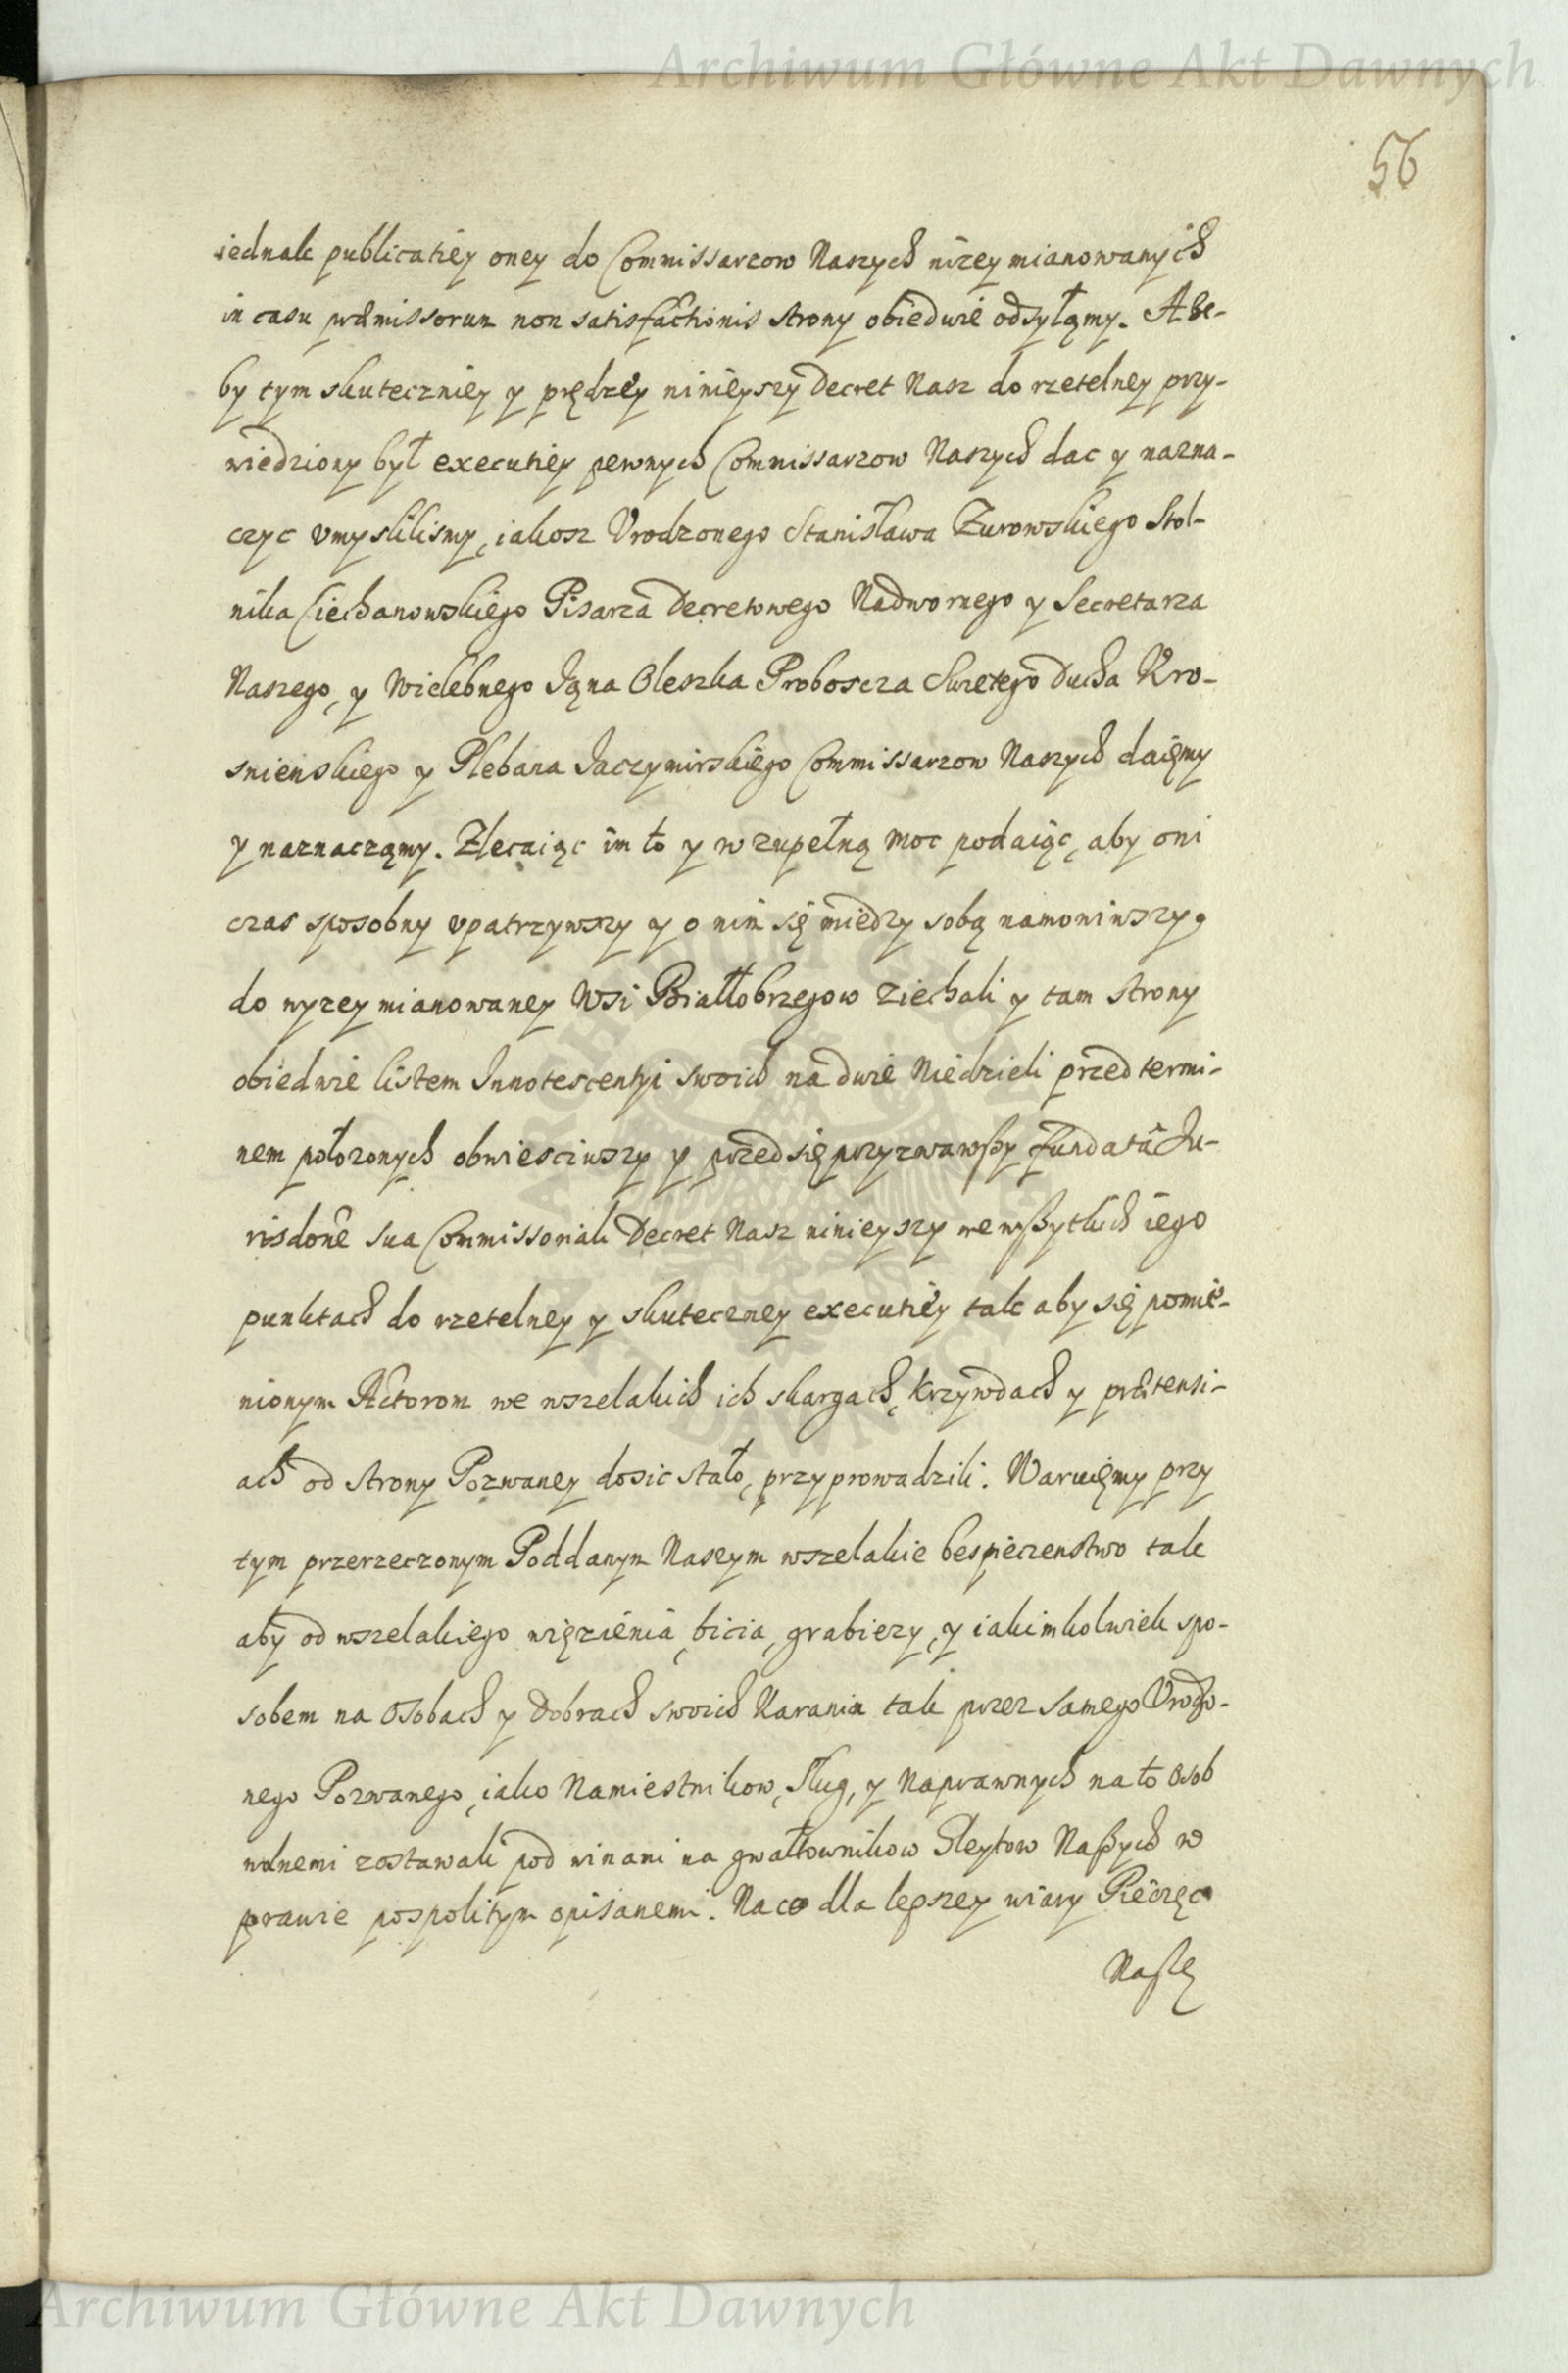 Archiwum Główne Akt Dawnych
56
iednak publicatiey oney do Commissarzow Naszych niżey mianowanych
in casu præmissorum non satisfactionis strony obiedwie odsyłąmy. A że-
by tym skuteczniey y prędzey ninieyszy Decret Nasz do rzetelney przy-
wiedziony był executiey pewnych Commissarzow Naszych dac y nazna-
czyc vmyslilismy, iakosz Vrodzonego Stanisława Żurowskiego Stol-
nika Ciechanowskiego Pisarza Decretowego Nadwornego y Secretarza
Naszego, y Wielebnego Jąna Oleszka Proboscza Swietego Ducha Kro-
snienskiego y Plebana Jaczymirskiego Commissarzow Naszych daięmy
y naznaczamy. Zlecaiąc im to y w zupełną moc podaiąc, aby oni
czas sposobny vpatrzywszy y o nim się miedzy sobą namowiwszy,
do wyzey mianowaney Wsi Białłobrzegow ziechali y tam strony
obiedwie listem Innotescentyi swoich na dwie Niedzieli przed termi-
nem położonych obwiesciwszy y przed się przyzwawszy fundata Ju-
risdone sua Commissoriali Decret Nasz ninieyszy we wszytkich iego
punktach do rzetelney y skuteczney executiey tak aby się pomie-
nionym Actorom we wszelakich ich skargach, krzywdach y prætensi-
ach od strony Pozwaney dosic stało, przyprowadzili. Waruięmy przy
tym przerzeczonym Poddanym Naszym wszelakie bespieczenstwo tak
aby od wszelakiego więzienia, bicia, grabiezy, y iakimkolwiek spo-
sobem na Osobach y Dobrach swoich Karania tak przez samego Vrodzo-
nego Pozwanego, iako Namiestnikow, Sług, y Naprawnych na to Osob
wolnemi zostawali pod winami na gwałtownikow Gleytow Naszych w
prawie pospolitym opisanemi. Na co dla lepszey wiary Pieczęc
Naszę
Archiwum Główne Akt Dawnych